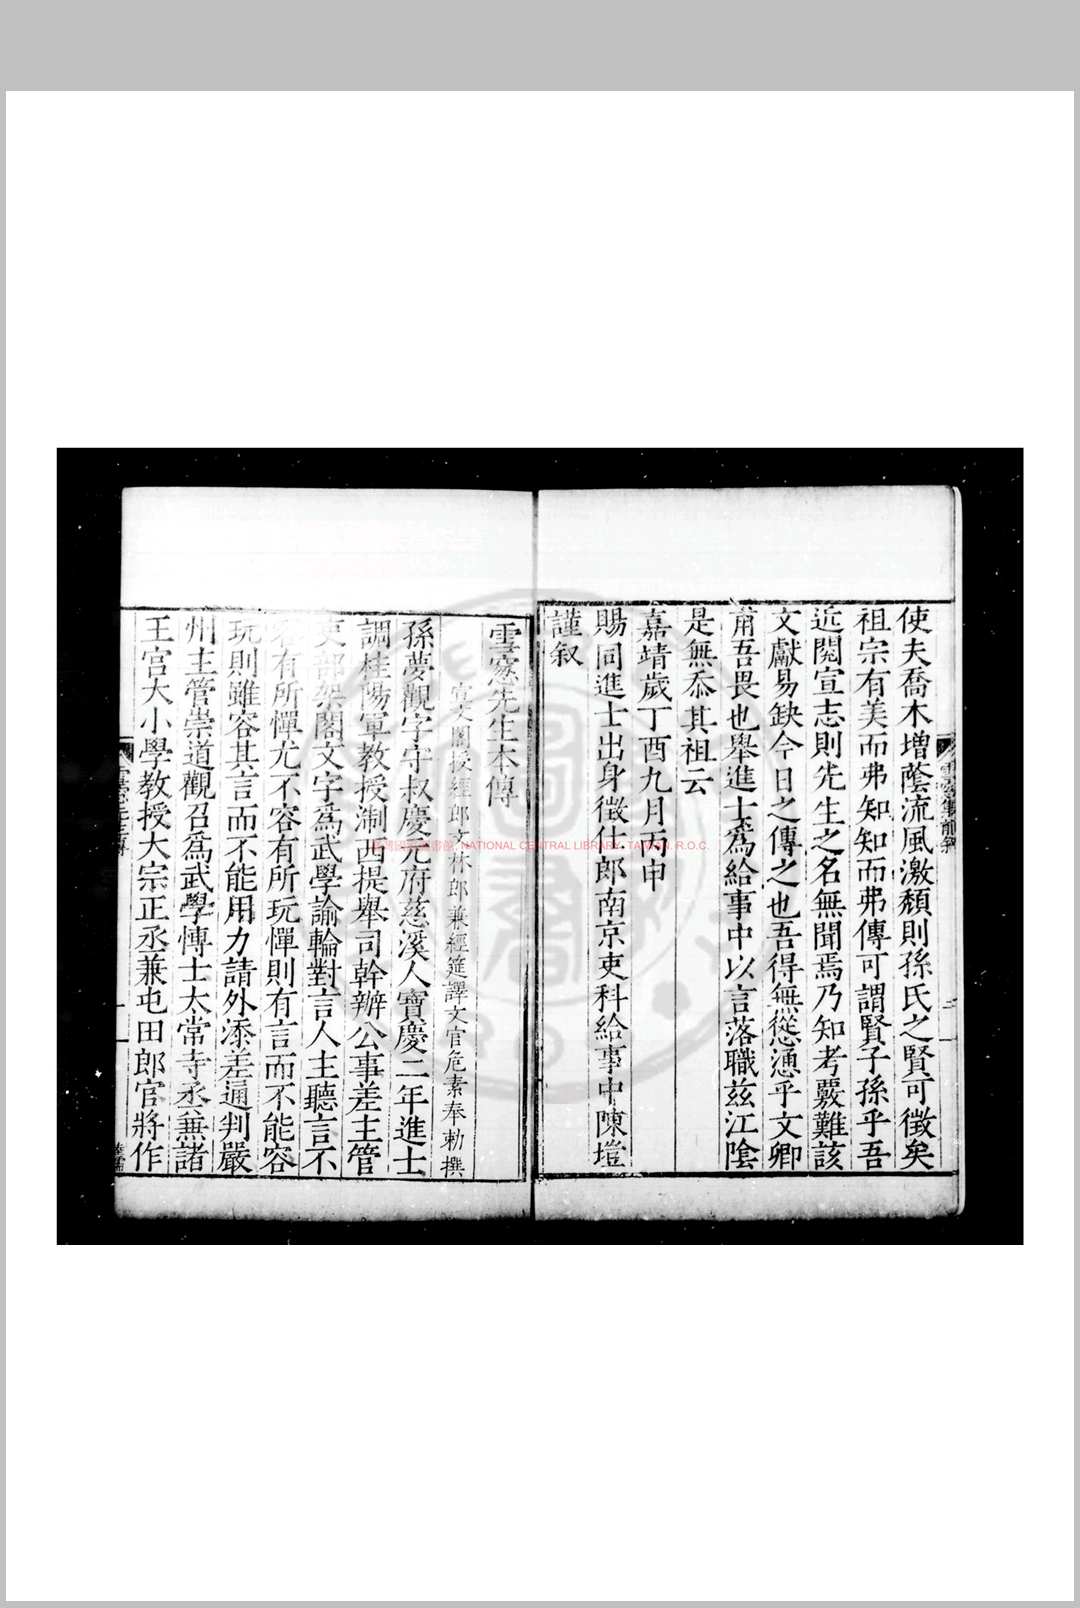 使夫喬木增蔭流風激頹則孫氏之賢可徵矣
祖宗有美而弗知知而弗傳可謂賢子孫乎吾
近閱宣志則先生之名無聞焉乃知考覈難該
文獻易缺今日之傳之也吾得無慫慂乎文卿
甫吾畏也舉進士爲給事中以言落職兹江陰
是無忝其祖云
嘉靖歲丁酉九月丙申
賜同進士出身徵仕郎南京吏科給事中陳塏
謹叙
雲窻先生本傳
宣文閣授經郎文林郎兼經筵譯文官危素奉勅撰
孫夢觀字守叔慶元府慈溪人寶慶二年進士
調桂陽軍教授浙西提舉司幹辦公事差主管
吏部架閣文字爲武學諭輪對言人主聽言不
容有所憚尤不容有所玩憚則有言而不能容
玩則雖容其言而不能用力請外添差通判嚴
州主管崇道觀召爲武學博士太常寺丞兼諸
王宫大小學教授大宗正丞兼屯田郎官將作
NATIONAL CENTRAL LIBRARY, TAIWAN, R.O.C.